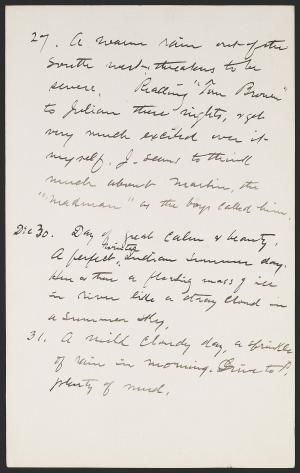 27. A warm rain out of the
South west - threatens to be
severe. Reading "Tom Brown"
to Julian these nights, & get
very much excited over it
myself. J. seems to think
much about Martin, the
"Madman" as the boys called him.
Dec 30. Day of great calm & beauty,
A perfect, winter Indian Summer day.
Here & there a floating mass of ice
in river like a stray cloud in
a Summer sky,
31. A mild cloudy day, a sprinkle
of rain in morning. Drive to P.
plenty of mud.